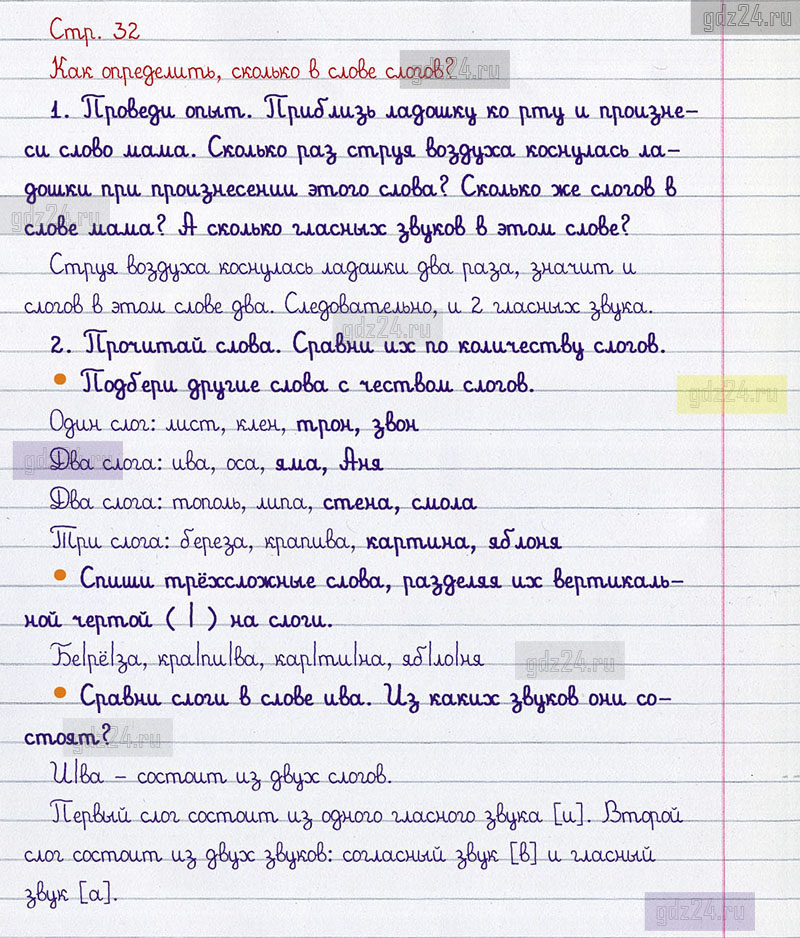 gdz24.ru
Стр. 32
Как определить, сколько в слове слогов?
gdz24.ru
1. Проведи опыт. Приблизь ладошку ко рту и произне-
си слово мама. Сколько раз струя воздуха коснулась ла-
дошки при произнесении этого слова? Сколько же слогов в
gdz24.ru
слове мама? А сколько гласных звуков в этом слове?
Струя воздуха коснулась ладашки два раза, значит и
слогов в этом слове два. Следовательно, и 2 гласных звука.
gdz24.ru
2. Прочитай слова. Сравни их по количеству слогов.
• Подбери другие слова с чеством слогов.
gdz24.ru
Один слог: лист, клен, трон, звон
gdz24.ru
Два слога: ива, оса, яма, Аня
Два слога: тополь, липа, стена, смола
Три слога: береза, крапива, картина, яблоня
• Спиши трёхсложные слова, разделяя их вертикаль-
ной чертой ( | ) на слоги.
Бе|рё|за, кра|пи|ва, кар|ти|на, яб|ло|ня
gdz24.ru
• Сравни слоги в слове ива. Из каких звуков они со-
стоят?
gdz24.ru
И|ва – состоит из двух слогов.
Первый слог состоит из одного гласного звука [и]. Второй
слог состоит из двух звуков: согласный звук [в] и гласный
звук [а].
gdz24.ru